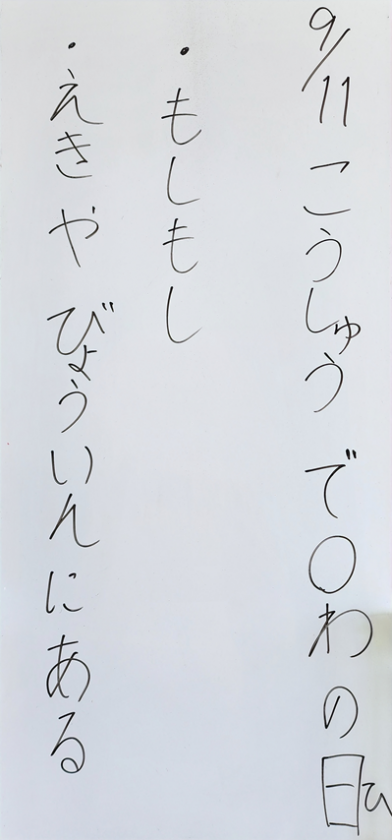 9/11 こうしゅう で〇わ の 日ひ
・もしもし
・えき や びょういん に ある